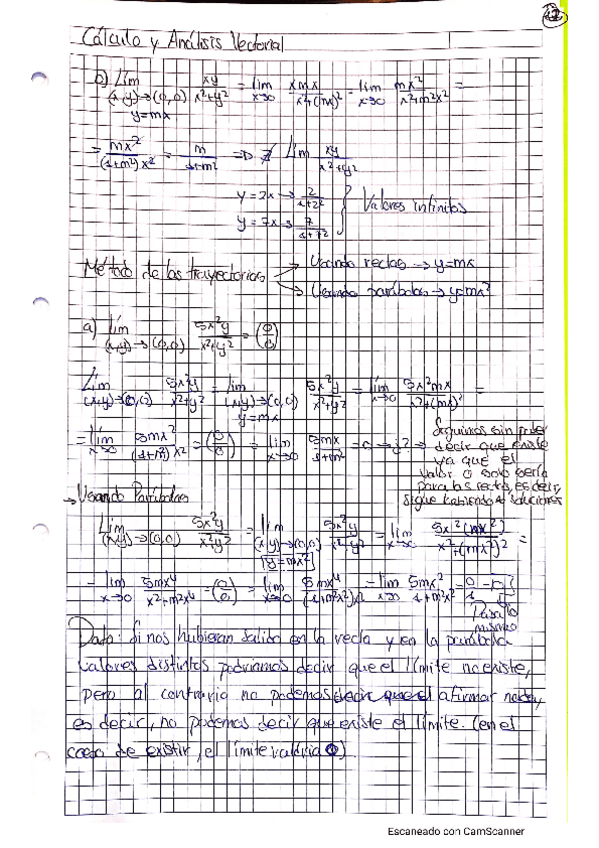 Cálculo y Análisis Vectorial
b) Lim (x,y)→(0,0) y=mx xy/x²+y² = lim x→0 xmx/x²+(mx)² = lim x→0 mx²/x²+m²x² =
= mx²/(1+m²)x² = m/1+m² => ∄ Lim xy/x²+y²
y=2x → 2/1+2²
y=7x → 7/1+7² } Valores infinitos
Método de las trayectorias → Usando rectas → y=mx
→ Usando parábolas → y=mx²
a) Lim (x,y)→(0,0) 5x²y/x²+y² = (0/0)
Lim (x,y)→(0,0) 5x²y/x²+y² = lim (x,y)→(0,0) y=mx 5x²y/x²+y² = lim x→0 5x²mx/x²+(mx)² =
= lim x→0 5mx³/(1+m²)x² = (0/0) = lim x→0 5mx/1+m² = 0 → ¿? →
Seguimos sin poder
decir que existe
ya que el
valor 0 solo sería
para las rectas, es decir,
sigue habiendo soluciones
→ Usando Parábolas
Lim (x,y)→(0,0) 5x²y/x²+y² = lim (x,y)→(0,0) y=mx² 5x²y/x²+y² = lim x→0 5x²(mx²)/x²+(mx²)² =
= lim x→0 5mx⁴/x²+m²x⁴ = (0/0) = lim x→0 5mx⁴/(1+m²x²)x² = lim x→0 5mx²/1+m²x² = 0/1 = 0
Pasa lo
mismo
Dato: Si nos hubieran salido en la recta y en la parábola
valores distintos podríamos decir que el límite no existe,
pero al contrario no podemos afirmar nada,
es decir, no podemos decir que existe el límite. (en el
caso de existir, el límite valdría 0)
Escaneado con CamScanner